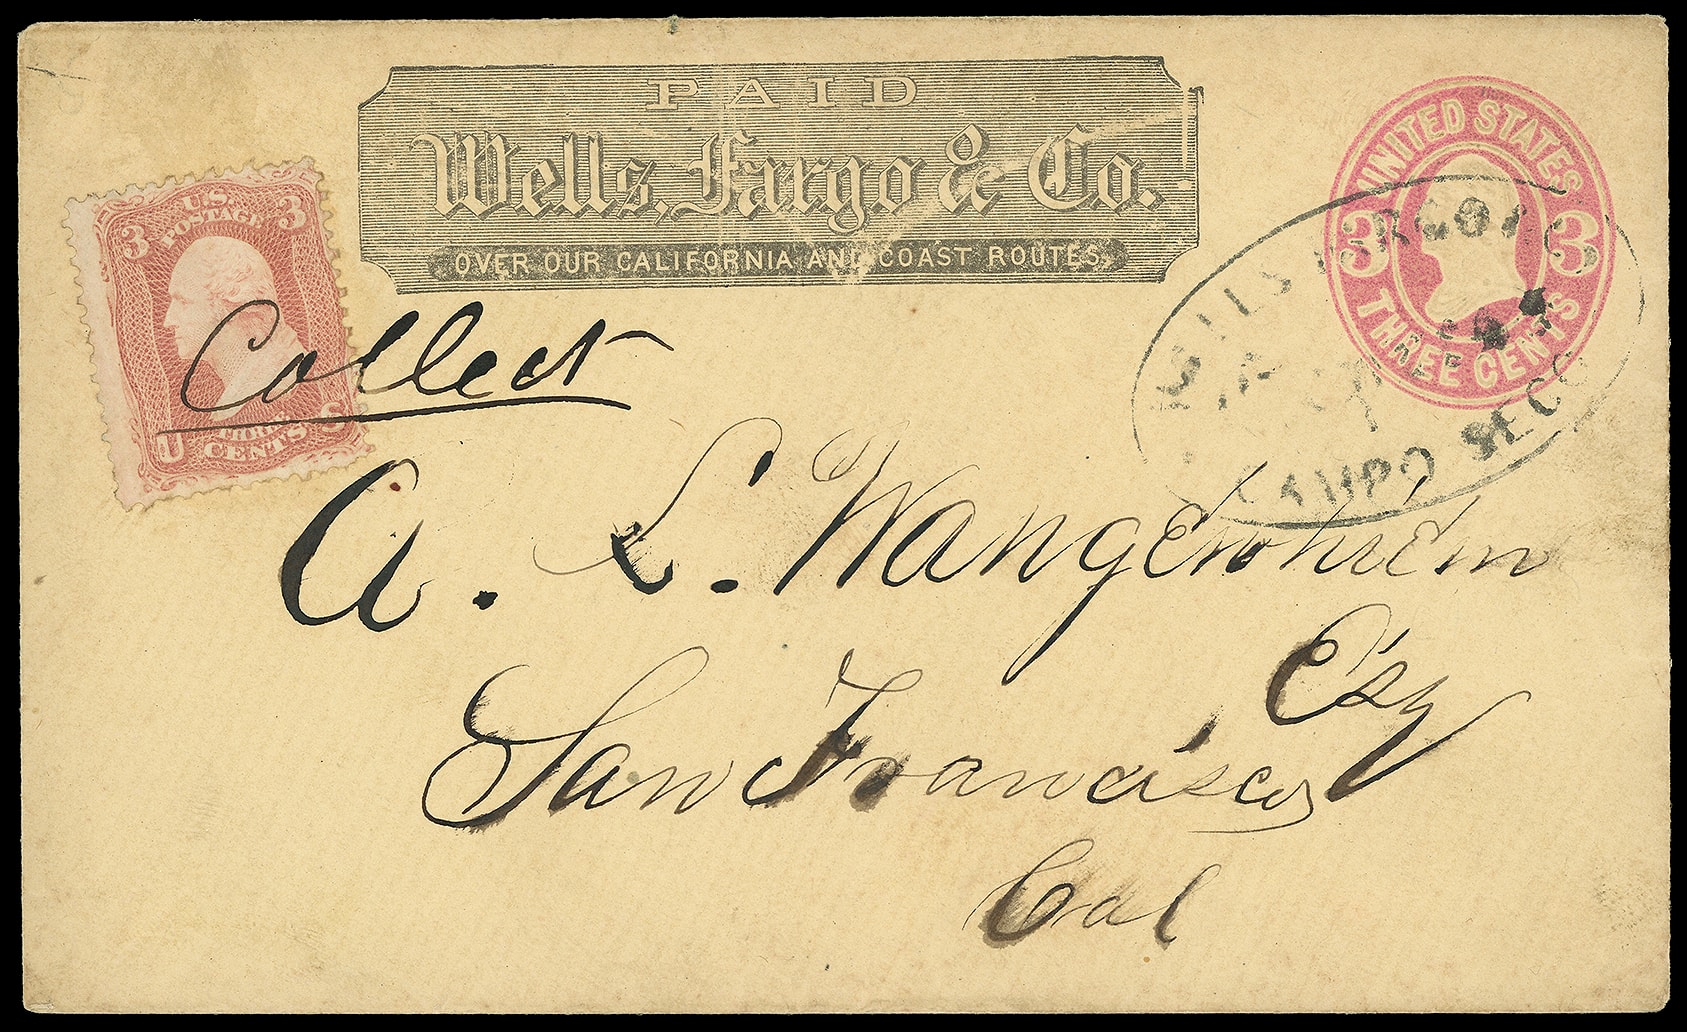 PAID
Wells, Fargo & Co.
OVER OUR CALIFORNIA AND COAST ROUTES.
UNITED STATES
3 3
THREE CENTS
3 U.S. 3
POSTAGE
U THREE S
CENTS
WELLS FARGO & CO
CAMPO SECO
Collect
A. L. Wangenheim
Esq
San Francisco
Cal